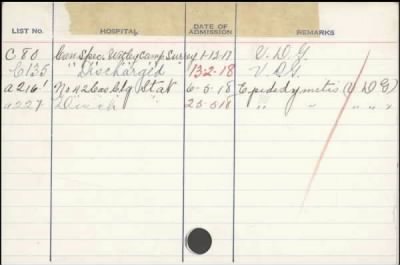 LIST NO. HOSPITAL DATE OF ADMISSION REMARKS
C 80 Can Spec. Witley Camp Surrey 1-12-17 V.D.G.
C135 " Discharged 13-2-18 V.D.G.
a216' No 42 Cas Clg Stat 6-5-18 Epididymetis (V D G)
a227 Disch 25-5-18 " " " " "